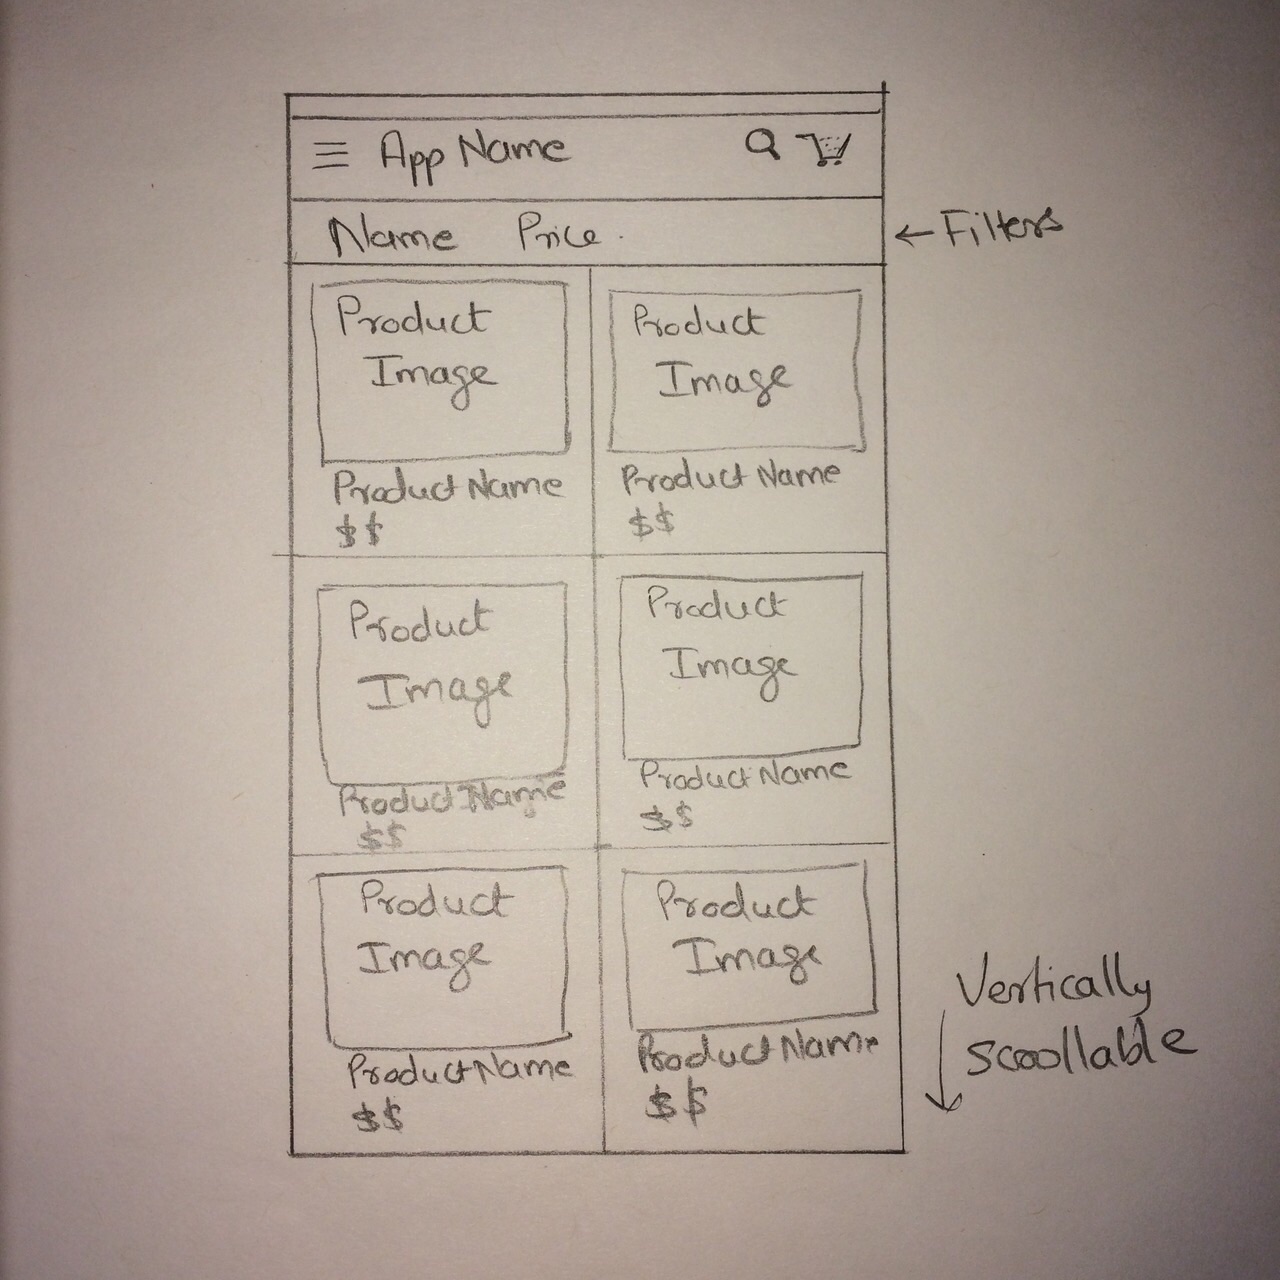 App Name
Name Price.
← Filters
Product
Image
Product Name
$$
Product
Image
Product Name
$$
Product
Image
Product Name
$$
Product
Image
Product Name
$$
Product
Image
Product Name
$$
Product
Image
Product Name
$$
Vertically
scrollable